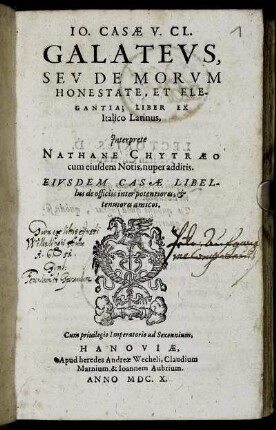 1
IO. CASÆ V. CL.
GALATEVS,
SEV DE MORVM
HONESTATE, ET ELE-
GANTIA; LIBER EX
Italico Latinus,
Interprete
NATHANE CHYTRÆO
cum eiusdem Notis, nuper additis.
EIVSDEM CASÆ LIBEL-
lus de officiis inter potentiores, &
tenuiores amicos.
Cum privilegio Imperatorio ad Sexennium,
HANOVIÆ,
Apud heredes Andreæ Wecheli, Claudium
Marnium, & Ioannem Aubrium.
ANNO MDC. X.